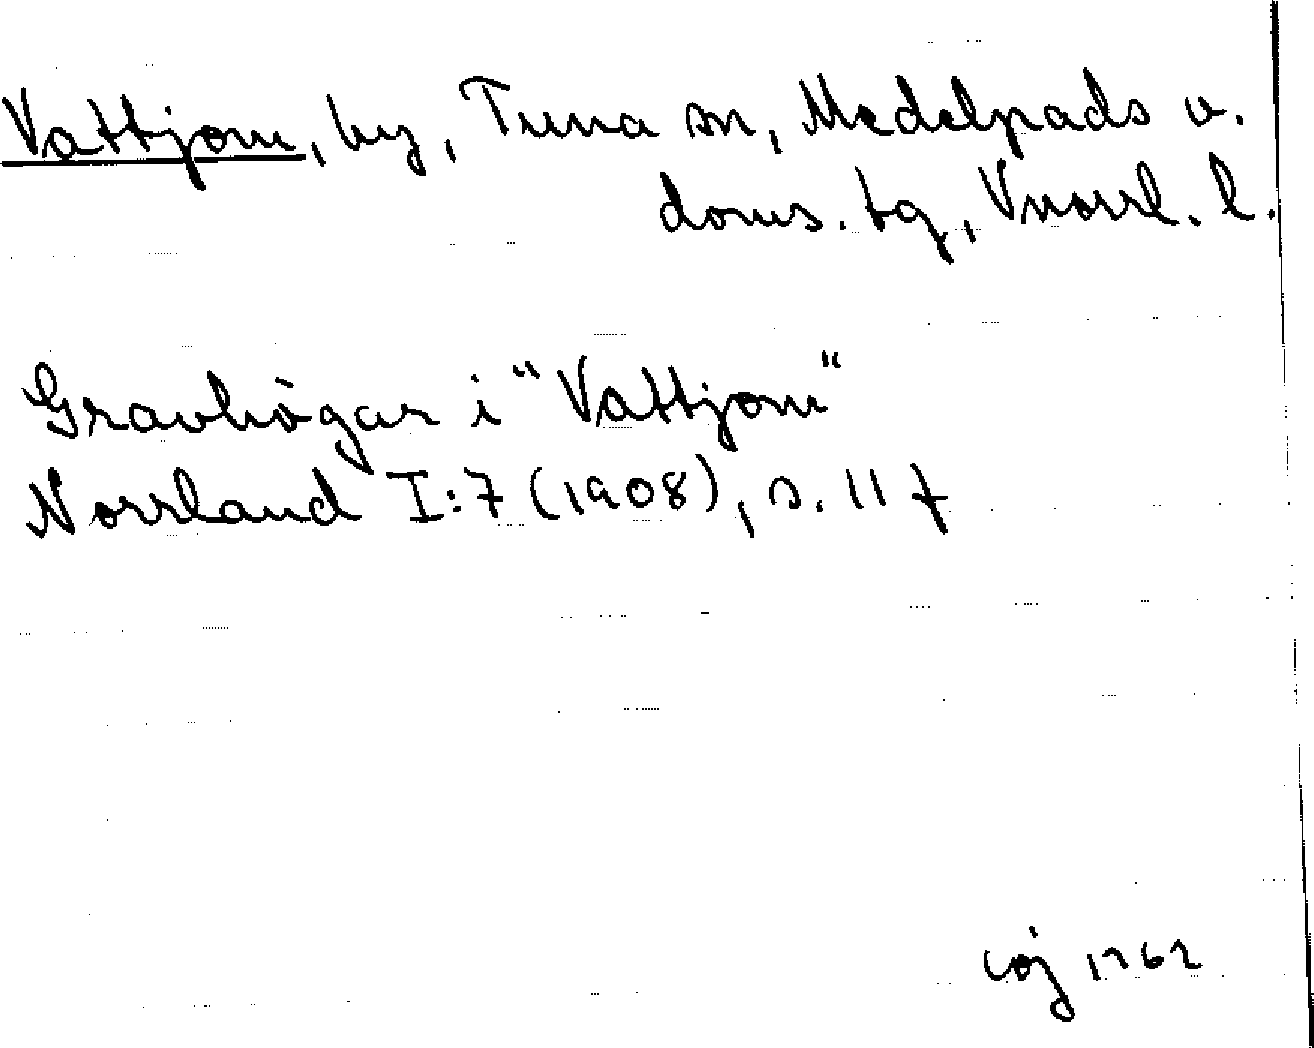 Vattjom, by, Tuna sn, Medelpads v.
doms. tg, Vnorrl. l.
Gravhögar i "Vattjom"
Norrland I:7 (1908), s. 11 f
1962